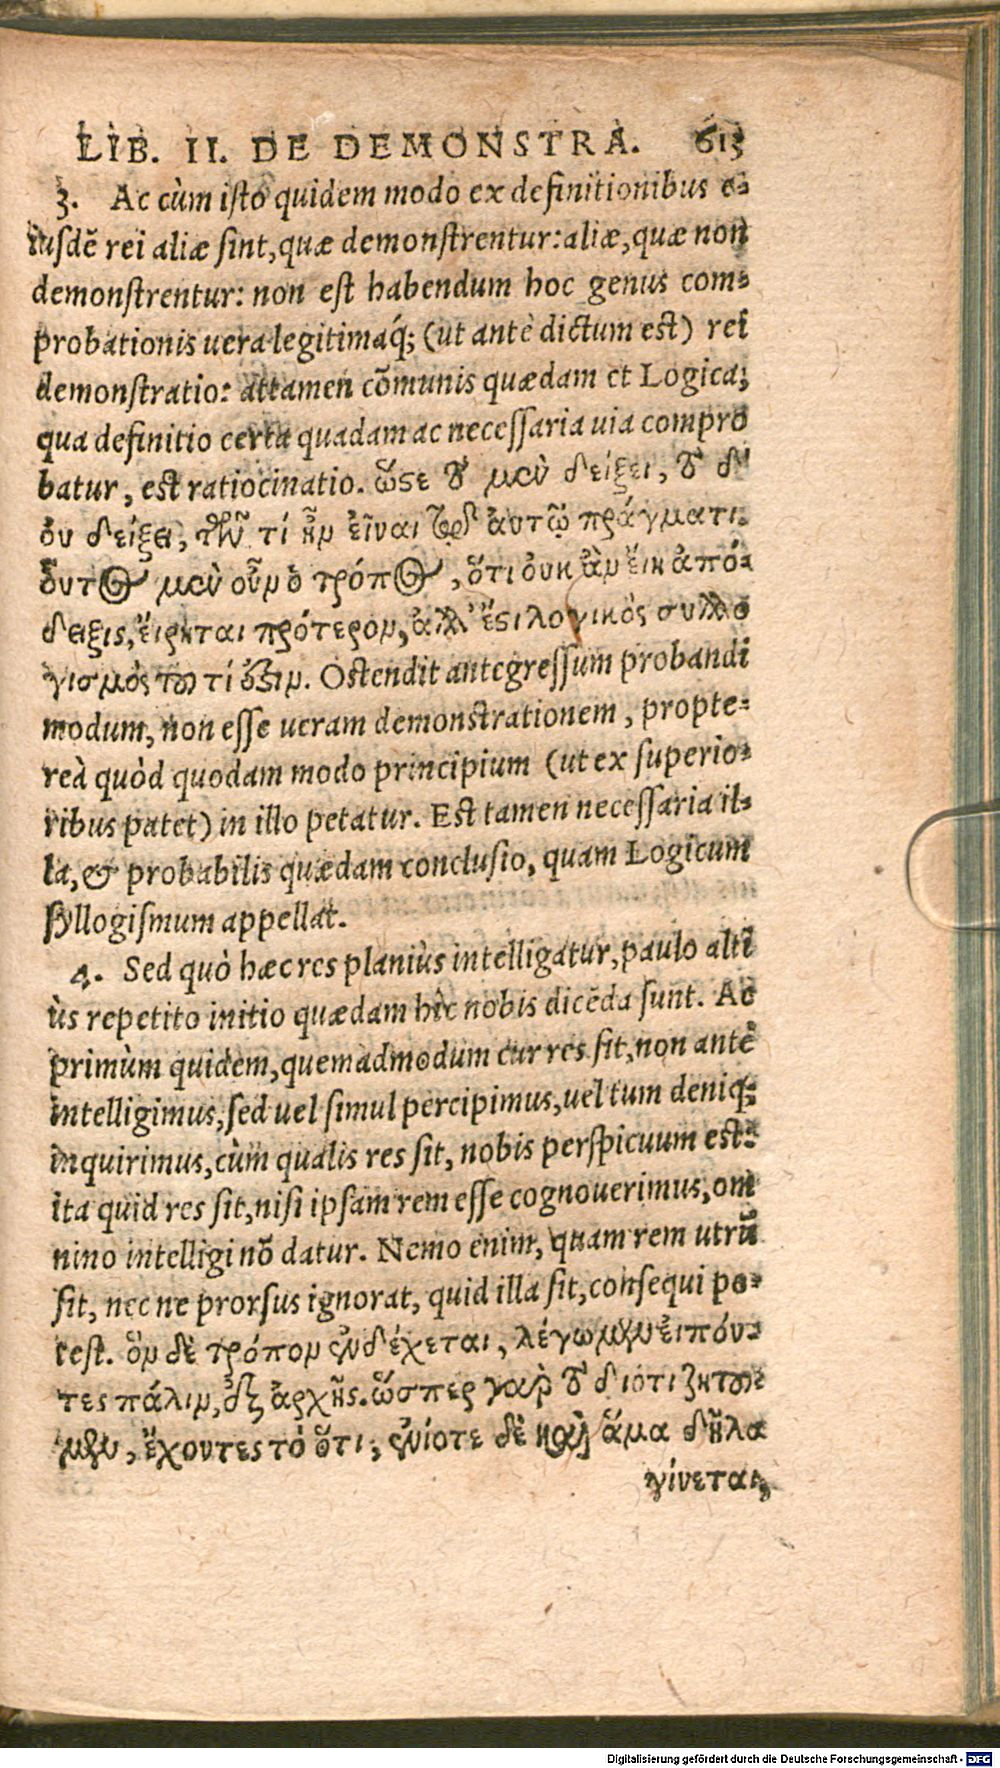 LIB. II. DE DEMONSTRA. 613
3. Ac cùm isto quidem modo ex definitionibus e-
iusdē rei aliæ sint, quæ demonstrentur: aliæ, quæ non
demonstrentur: non est habendum hoc genus com-
probationis uera legitimaq́; (ut antè dictum est) rei
demonstratio: attamen cōmunis quædam et Logica;
qua definitio certa quadam ac necessaria uia compro
batur, est ratiocinatio. ὥστε τὸ μὲν δείξει, τὸ δ'
ὀυ δείξει, τῶν τί ἦν εἶναι τῷ ἀυτῷ πράγματι.
ὅυτος μὲν οὖν ὁ τρόπος, ὅτι ὀυκ ἂν ἔιη ἀπό-
δειξις, ἔιρηται πρότερον, ἀλλ' ἔστι λογικὸς συλλο
γισμὸς τοῦ τί ἐστιν. Ostendit antegressum probandi
modum, non esse ueram demonstrationem, propte-
reà quòd quodam modo principium (ut ex superio-
ribus patet) in illo petatur. Est tamen necessaria il-
la, & probabilis quædam conclusio, quam Logicum
syllogismum appellat.
4. Sed quò hæc res planiùs intelligatur, paulo alti
ùs repetito initio quædam hîc nobis dicēda sunt. Ac
primùm quidem, quemadmodum cur res sit, non antè
intelligimus, sed uel simul percipimus, uel tum deniq;
inquirimus, cùm qualis res sit, nobis perspicuum est:
ita quid res sit, nisi ipsam rem esse cognouerimus, om
nino intelligi nō datur. Nemo enim, quam rem utrū
sit, nec ne prorsus ignorat, quid illa sit, consequi po-
test. ὃν δὲ τρόπον ἐνδέχεται, λέγωμεν ἐιπόν-
τες πάλιν, ἐξ ἀρχῆς. ὥσπερ γὰρ τὸ διότι ζητοῦ-
μεν, ἔχοντες τὸ ὅτι; ἐνίοτε δὲ καὶ ἅμα δῆλα
γίνεται,
Digitalisierung gefördert durch die Deutsche Forschungsgemeinschaft - DFG